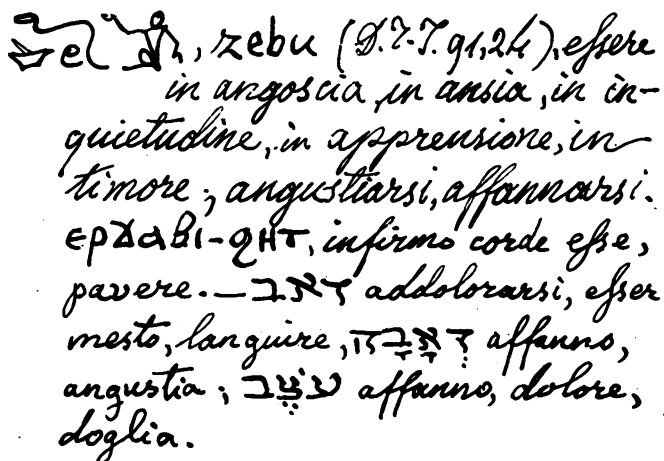 , zebu (D.T.T. 91,24), essere
in angoscia, in ansia, in in-
quietudine, in apprensione, in
timore; angustiarsi, affannarsi.
ⲉⲣϫⲁⲃⲓ-ϩⲏⲧ, infirmo corde esse,
pavere. — דאב addolorarsi, esser
mesto, languire, דְּאָבָה affanno,
angustia; עֹצֶב affanno, dolore,
doglia.